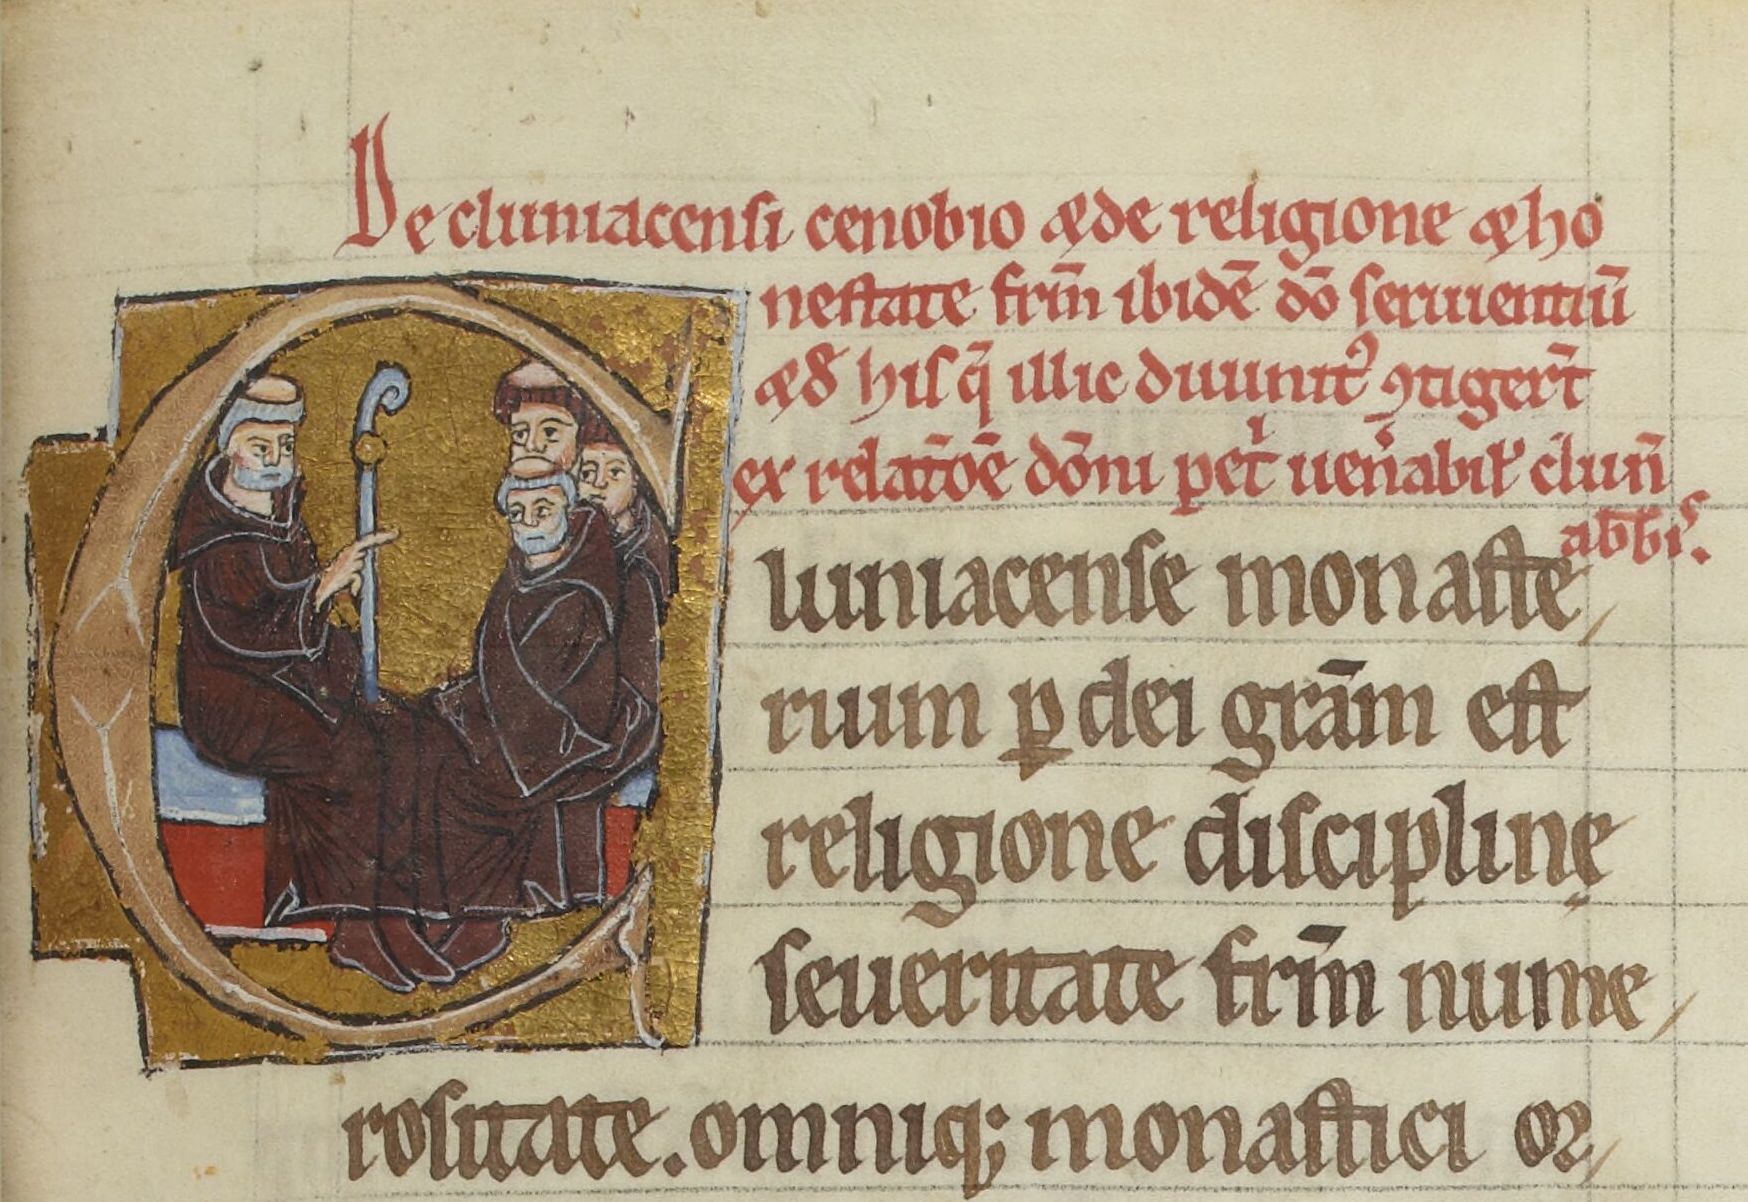 De cluniacensi cenobio ⁊ de religione ⁊ ho
nestate fr̄m ibidē dō seruientiū
⁊ de his q̄ illic diuinit᷒ ꝯtiger̄t
ex relatōē dōni petͥ uen̄abilꝭ clun̄
abb̄is.
Cluniacense monaste
rium ꝑ dei gr̄am est
religione disciplinę
seueritate fr̄m nume
rositate. omniq; monastici or